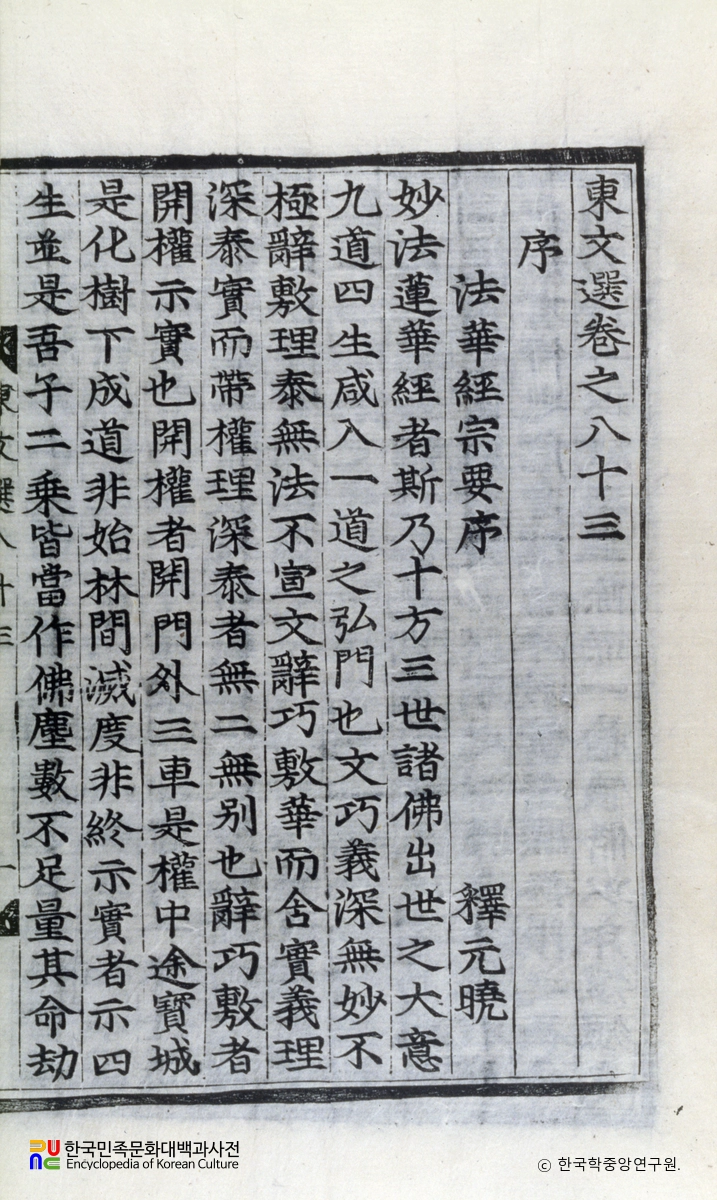 東文選卷之八十三
序
法華經宗要序 釋元曉
妙法蓮華經者斯乃十方三世諸佛出世之大意
九道四生咸入一道之弘門也文巧義深無妙不
極辭敷理泰無法不宣文辭巧敷華而含實義理
深泰實而帶權理深泰者無二無別也辭巧敷者
開權示實也開權者開門外三車是權中途寶城
是化樹下成道非始林間滅度非終示實者示四
生並是吾子二乘皆當作佛塵數不足量其命劫
東文選八十三 一
한국민족문화대백과사전
Encyclopedia of Korean Culture
© 한국학중앙연구원.